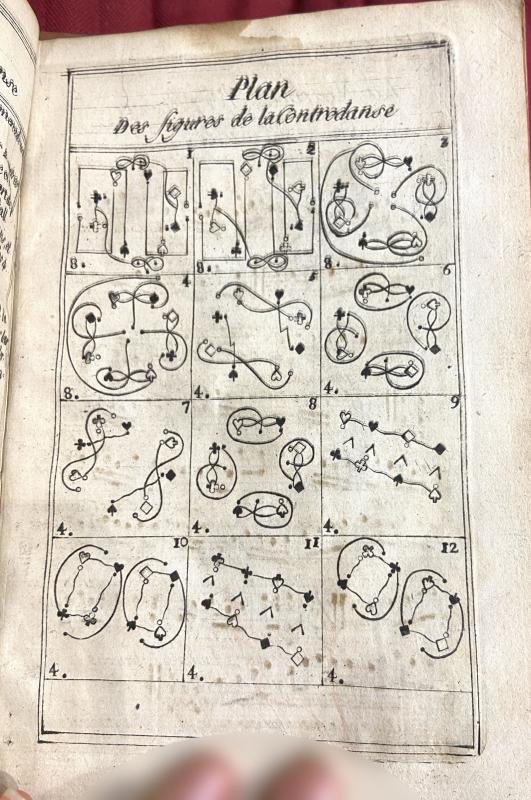 Plan
Des figures de la Contredanse
1 2 3
8. 8. 8.
4 5 6
8. 4. 4.
7 8 9
4. 4. 4.
10 11 12
4. 4. 4.